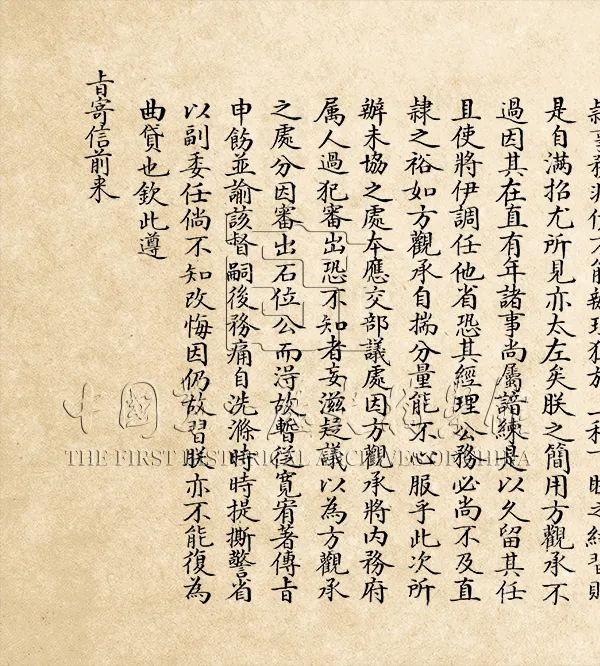 事務非伊不能辦理
是自滿招尤所見亦太左矣朕之簡用方觀承不
過因其在直有年諸事尚屬諳練是以久留其任
且使將伊調任他省恐其經理公務必尚不及直
隸之裕如方觀承自揣分量能不心服乎此次所
辦未協之處本應交部議處因方觀承將內務府
属人過犯審出恐不知者妄滋議以為方觀承
之處分因審出石位公而得故暫從寬宥著傳旨
申飭並諭該督嗣後務痛自洗滌時時提撕警省
以副委任倘不知改悔因仍故習朕亦不能復為
曲貸也欽此遵
旨寄信前来
中國第一歷史檔案館
THE FIRST HISTORICAL ARCHIVES OF CHINA